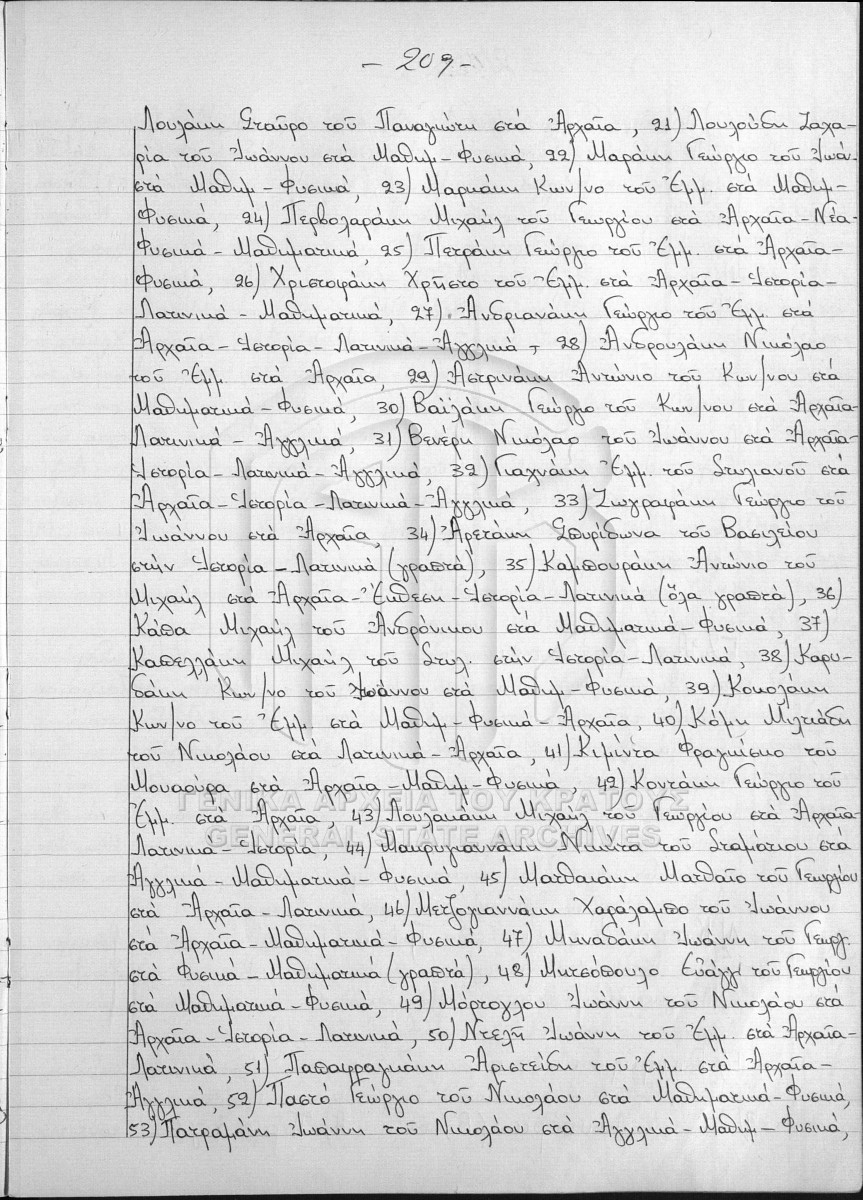 - 209 -
Λουλάκη Σταύρο τοῦ Παναγιώτη στά Ἀρχαῖα, 21) Λουλούδη Ζαχα-
ρία τοῦ Ἰωάννου στά Μαθημ-Φυσικά, 22) Μαράκη Γεώργιο τοῦ Ἰωάν
στά Μαθημ-Φυσικά, 23) Μαριάκη Κων/νο τοῦ Ἐμμ. στά Μαθημ-
Φυσικά, 24) Περβολαράκη Μιχαήλ τοῦ Γεωργίου στά Ἀρχαῖα-Νέα-
Φυσικά-Μαθηματικά, 25) Πετράκη Γεώργιο τοῦ Ἐμμ. στά Ἀρχαῖα-
Φυσικά, 26) Χριστοφάκη Χρῆστο τοῦ Ἐμμ. στά Ἀρχαῖα-Ἱστορία-
Λατινικά-Μαθηματικά, 27) Ἀνδριανάκη Γεώργιο τοῦ Ἐμμ. στά
Ἀρχαῖα-Ἱστορία-Λατινικά-Ἀγγλικά, 28) Ἀνδρουλάκη Νικόλαο
τοῦ Ἐμμ. στά Ἀρχαῖα, 29) Ἀστρινάκη Ἀντώνιο τοῦ Κων/νου στά
Μαθηματικά-Φυσικά, 30) Βαϊλάκη Γεώργιο τοῦ Κων/νου στά Ἀρχαῖα-
Λατινικά-Ἀγγλικά, 31) Βενέρη Νικόλαο τοῦ Ἰωάννου στά Ἀρχαῖα-
Ἱστορία-Λατινικά-Ἀγγλικά, 32) Γιαχνάκη Ἐμμ. τοῦ Στυλιανοῦ στά
Ἀρχαῖα-Ἱστορία-Λατινικά-Ἀγγλικά, 33) Ζωγραφάκη Γεώργιο τοῦ
Ἰωάννου στά Ἀρχαῖα, 34) Ἀρετάκη Σπυρίδωνα τοῦ Βασιλείου
στήν Ἱστορία-Λατινικά (γραπτά), 35) Καμπουράκη Ἀντώνιο τοῦ
Μιχαήλ στά Ἀρχαῖα-Ἔκθεση-Ἱστορία-Λατινικά (ὅλα γραπτά), 36)
Κάπα Μιχαήλ τοῦ Ἀνδρόνικου στά Μαθηματικά-Φυσικά, 37)
Καπελλάκη Μιχαήλ τοῦ Στυλ. στήν Ἱστορία-Λατινικά, 38) Καρυ-
δάκη Κων/νο τοῦ Ἰωάννου στά Μαθημ-Φυσικά, 39) Κοκολάκη
Κων/νο τοῦ Ἐμμ. στά Μαθημ-Φυσικά-Ἀρχαῖα, 40) Κόμη Μιλτιάδη
τοῦ Νικολάου στά Λατινικά-Ἀρχαῖα, 41) Κιμίντα Φραγκίσκο τοῦ
Μουαούρα στά Ἀρχαῖα-Μαθημ-Φυσικά, 42) Κοντάκη Γεώργιο τοῦ
Ἐμμ. στά Ἀρχαῖα, 43) Λουλακάκη Μιχαήλ τοῦ Γεωργίου στά Ἀρχαῖα-
Λατινικά-Ἱστορία, 44) Μακρυγιαννάκη Νικήτα τοῦ Σταμάτιου στά
Ἀγγλικά-Μαθηματικά-Φυσικά, 45) Ματθαιάκη Ματθαῖο τοῦ Γεωργίου
στά Ἀρχαῖα-Λατινικά, 46) Μετζογιαννάκη Χαράλαμπο τοῦ Ἰωάννου
στά Ἀρχαῖα-Μαθηματικά-Φυσικά, 47) Μηναδάκη Ἰωάννη τοῦ Γεωργ.
στά Φυσικά-Μαθηματικά (γραπτά), 48) Μητσόπουλο Εὐάγγ τοῦ Γεωργίου
στά Μαθηματικά-Φυσικά, 49) Μόρτογλου Ἰωάννη τοῦ Νικολάου στά
Ἀρχαῖα-Ἱστορία-Λατινικά, 50) Ντελῆ Ἰωάννη τοῦ Ἐμμ. στά Ἀρχαῖα-
Λατινικά, 51) Παπαφραγκάκη Ἀριστείδη τοῦ Ἐμμ. στά Ἀρχαῖα-
Ἀγγλικά, 52) Παστό Γεώργιο τοῦ Νικολάου στά Μαθηματικά-Φυσικά,
53) Πατραμάνη Ἰωάννη τοῦ Νικολάου στά Ἀγγλικά-Μαθημ-Φυσικά,
ΓΕΝΙΚΑ ΑΡΧΕΙΑ ΤΟΥ ΚΡΑΤΟΥΣ
GENERAL STATE ARCHIVES